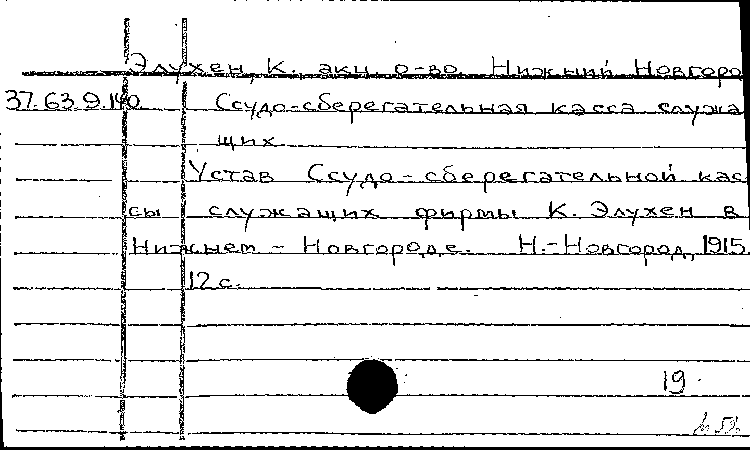 Элухен, К., акц. о-во. Нижний Новгоро
37.63.9.140 Ссудо-сберегательная касса служа
щих
Устав Ссудо-сберегательной кас
сы служащих фирмы К. Элухен в
Нижнем-Новгороде. Н.-Новгород, 1915.
12 с.
19